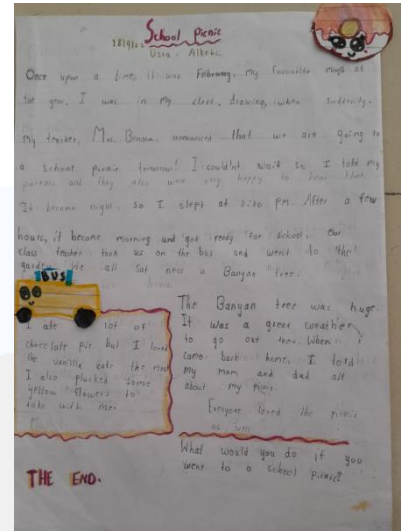 School Picnic
Once upon a time, it was February, my favourite month of
the year, I was in my class, drawing, when suddenly,
my teacher, Mrs. announced that we are going to
a school picnic tomorrow! I couldn't wait so I told my
parents and they also were very happy to hear that.
It became night, so I slept at pm. After a few
hours, it became morning and got ready for school. Our
class teacher took us on the bus and went to the
garden. We all sat near a Banyan tree.
BUS
I ate lot of
chocolate pie but I loved
the vanilla cake the most
I also plucked some
yellow flowers to
take with me.
The Banyan tree was huge.
It was a great weather
to go out then. When I
came back home, I told
my mom and dad all
about my picnic.
Everyone loved the picnic
What would you do if you
went to a school picnic?
THE END.